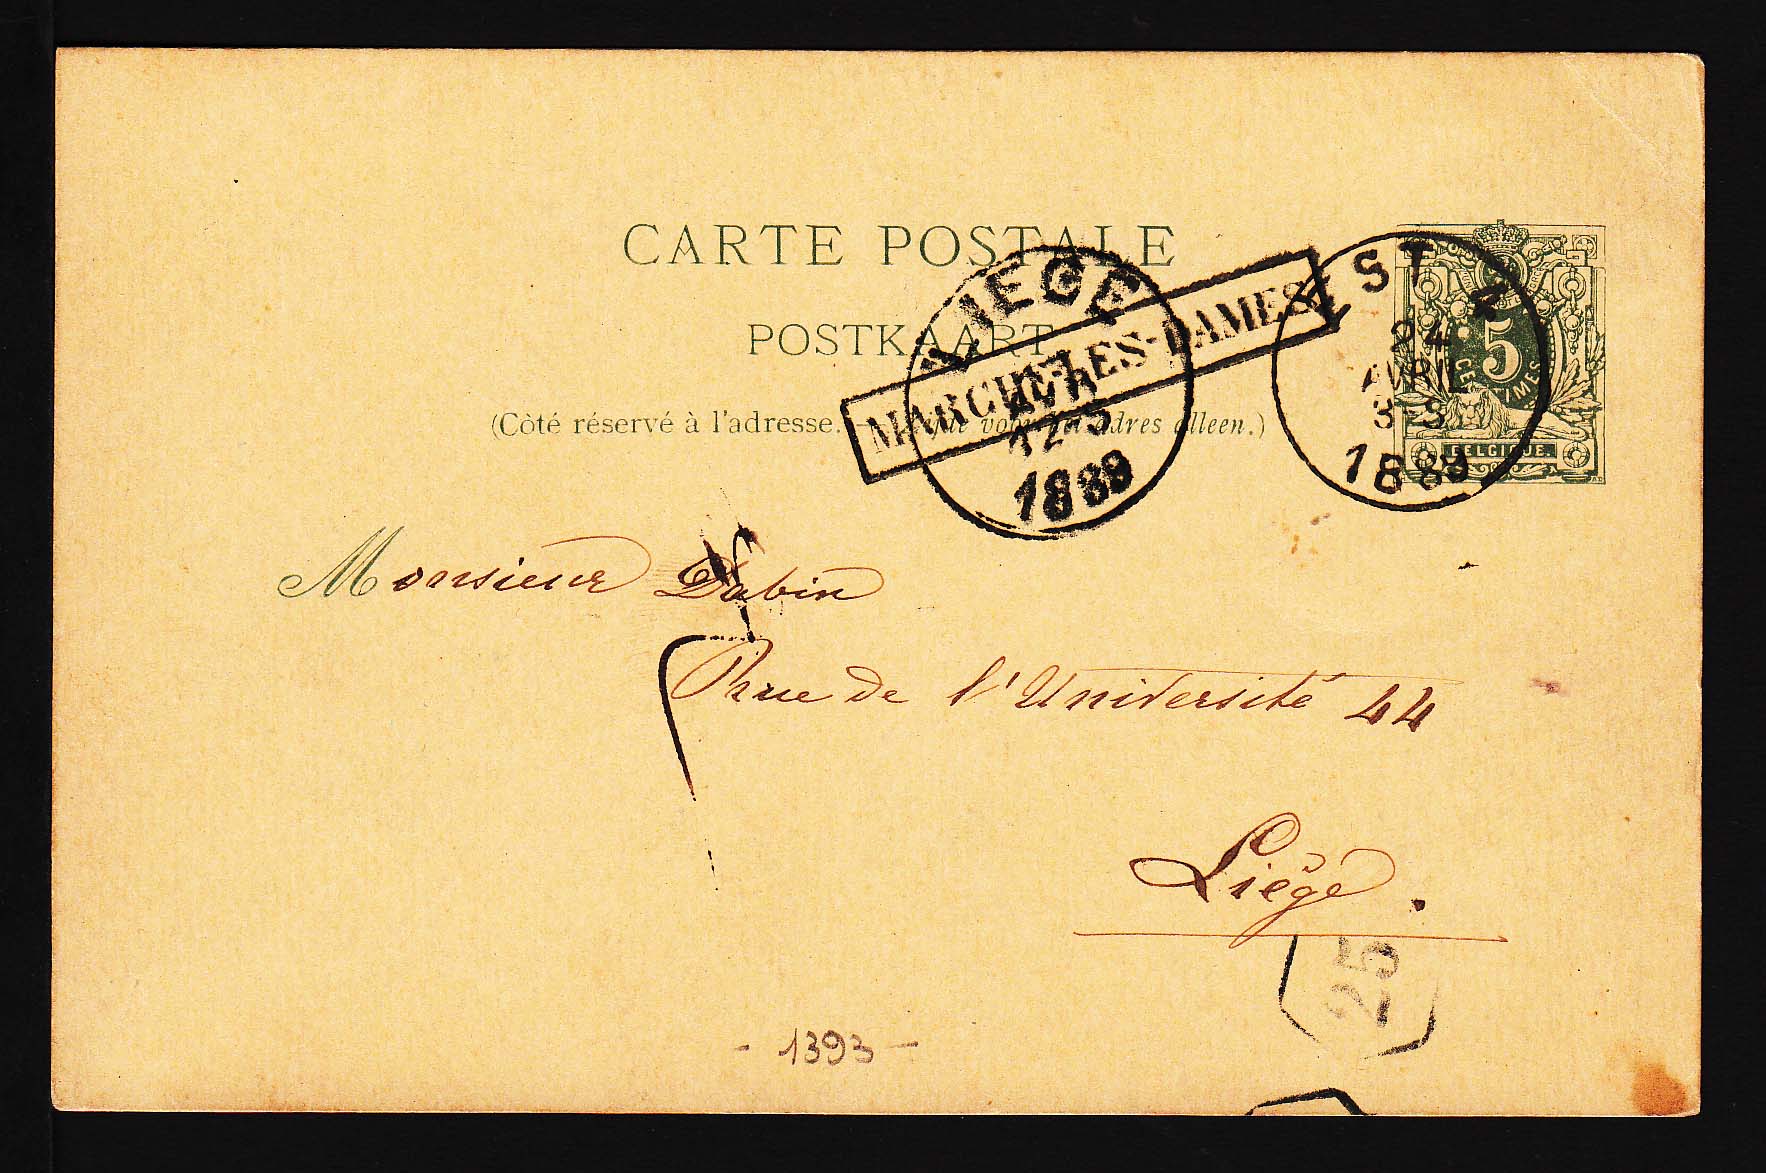 CARTE POSTALE
POSTKAART
(Côté réservé à l'adresse. — Zijde voor het adres alleen.)
MARCHE-LES-DAMES
LIEGE
AVR
12-5
1889
EST
24
AVRIL
3-S
1889
5
CENTIMES
BELGIQUE
Monsieur Dabin
Rue de l'Université 44
Liège.
25
- 1393 -